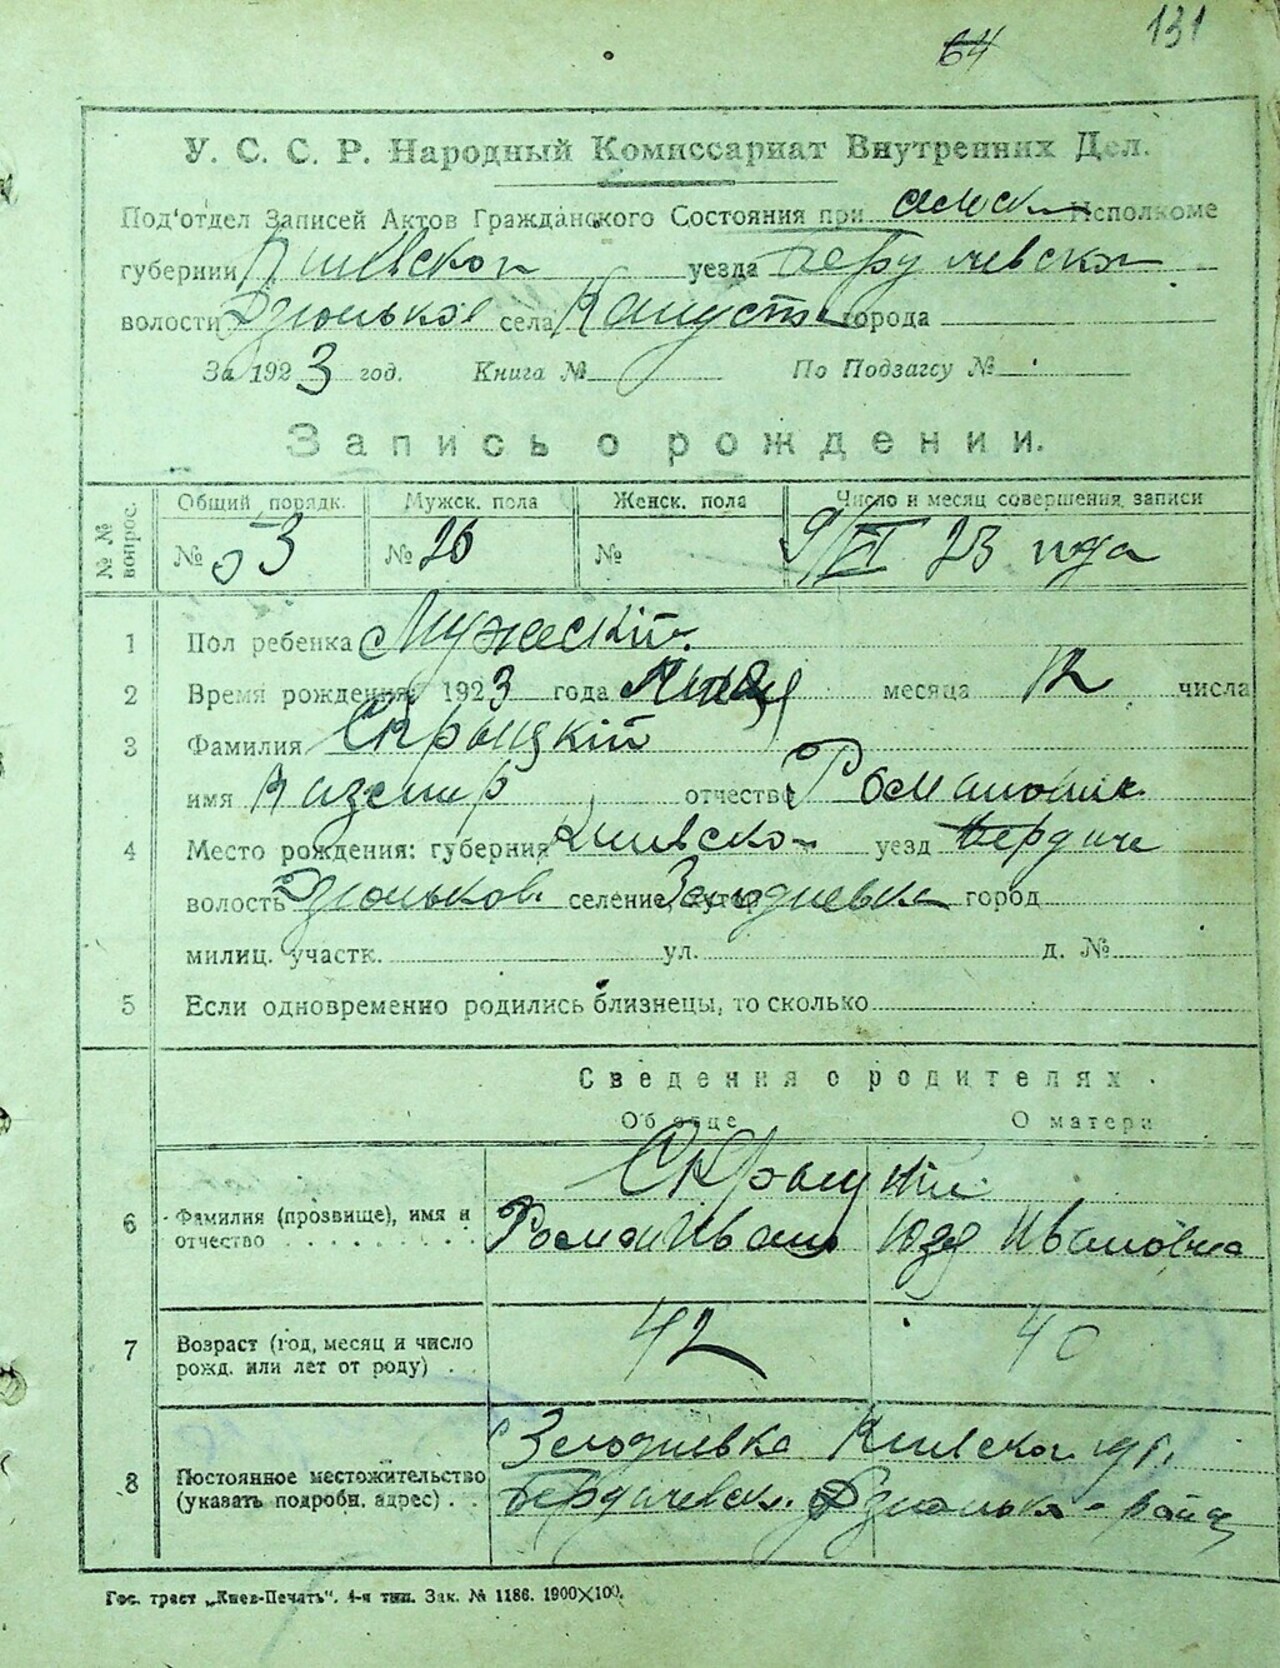 131
64
У. С. С. Р. Народный Комиссариат Внутренних Дел.
Под'отдел Записей Актов Гражданского Состояния при Исполкоме
губернии Киевской уезда Бердичевской
волости Дзюньков села города
За 1923 год. Книга № По Подзагсу №
Запись о рождении.
№№ вопрос. Общий порядк. Мужск. пола Женск. пола Число и месяц совершения записи
№ 53 № 26 № 9/VI 23 года
1 Пол ребенка Мужескій
2 Время рождения: 1923 года месяца 12 числа
3 Фамилия Скрыцкій
имя Каземир отчество Романович
4 Место рождения: губерния Киевской уезд Бердиче
волость Дзюньков. селение, хутор город
милиц. участк. ул. д. №
5 Если одновременно родились близнецы, то сколько
Сведения о родителях.
Об отце О матери
Скрыцкіи
6 Фамилия (прозвище), имя и Роман Иван Юзя Ивановна
отчество
7 Возраст (год, месяц и число 42 40
рожд. или лет от роду)
Киевской губ.
8 Постоянное местожительство Бердичевск.
(указать подробн. адрес)
Гос. трест „Киев-Печать“. 4-я тип. Зак. № 1186. 1900×100.